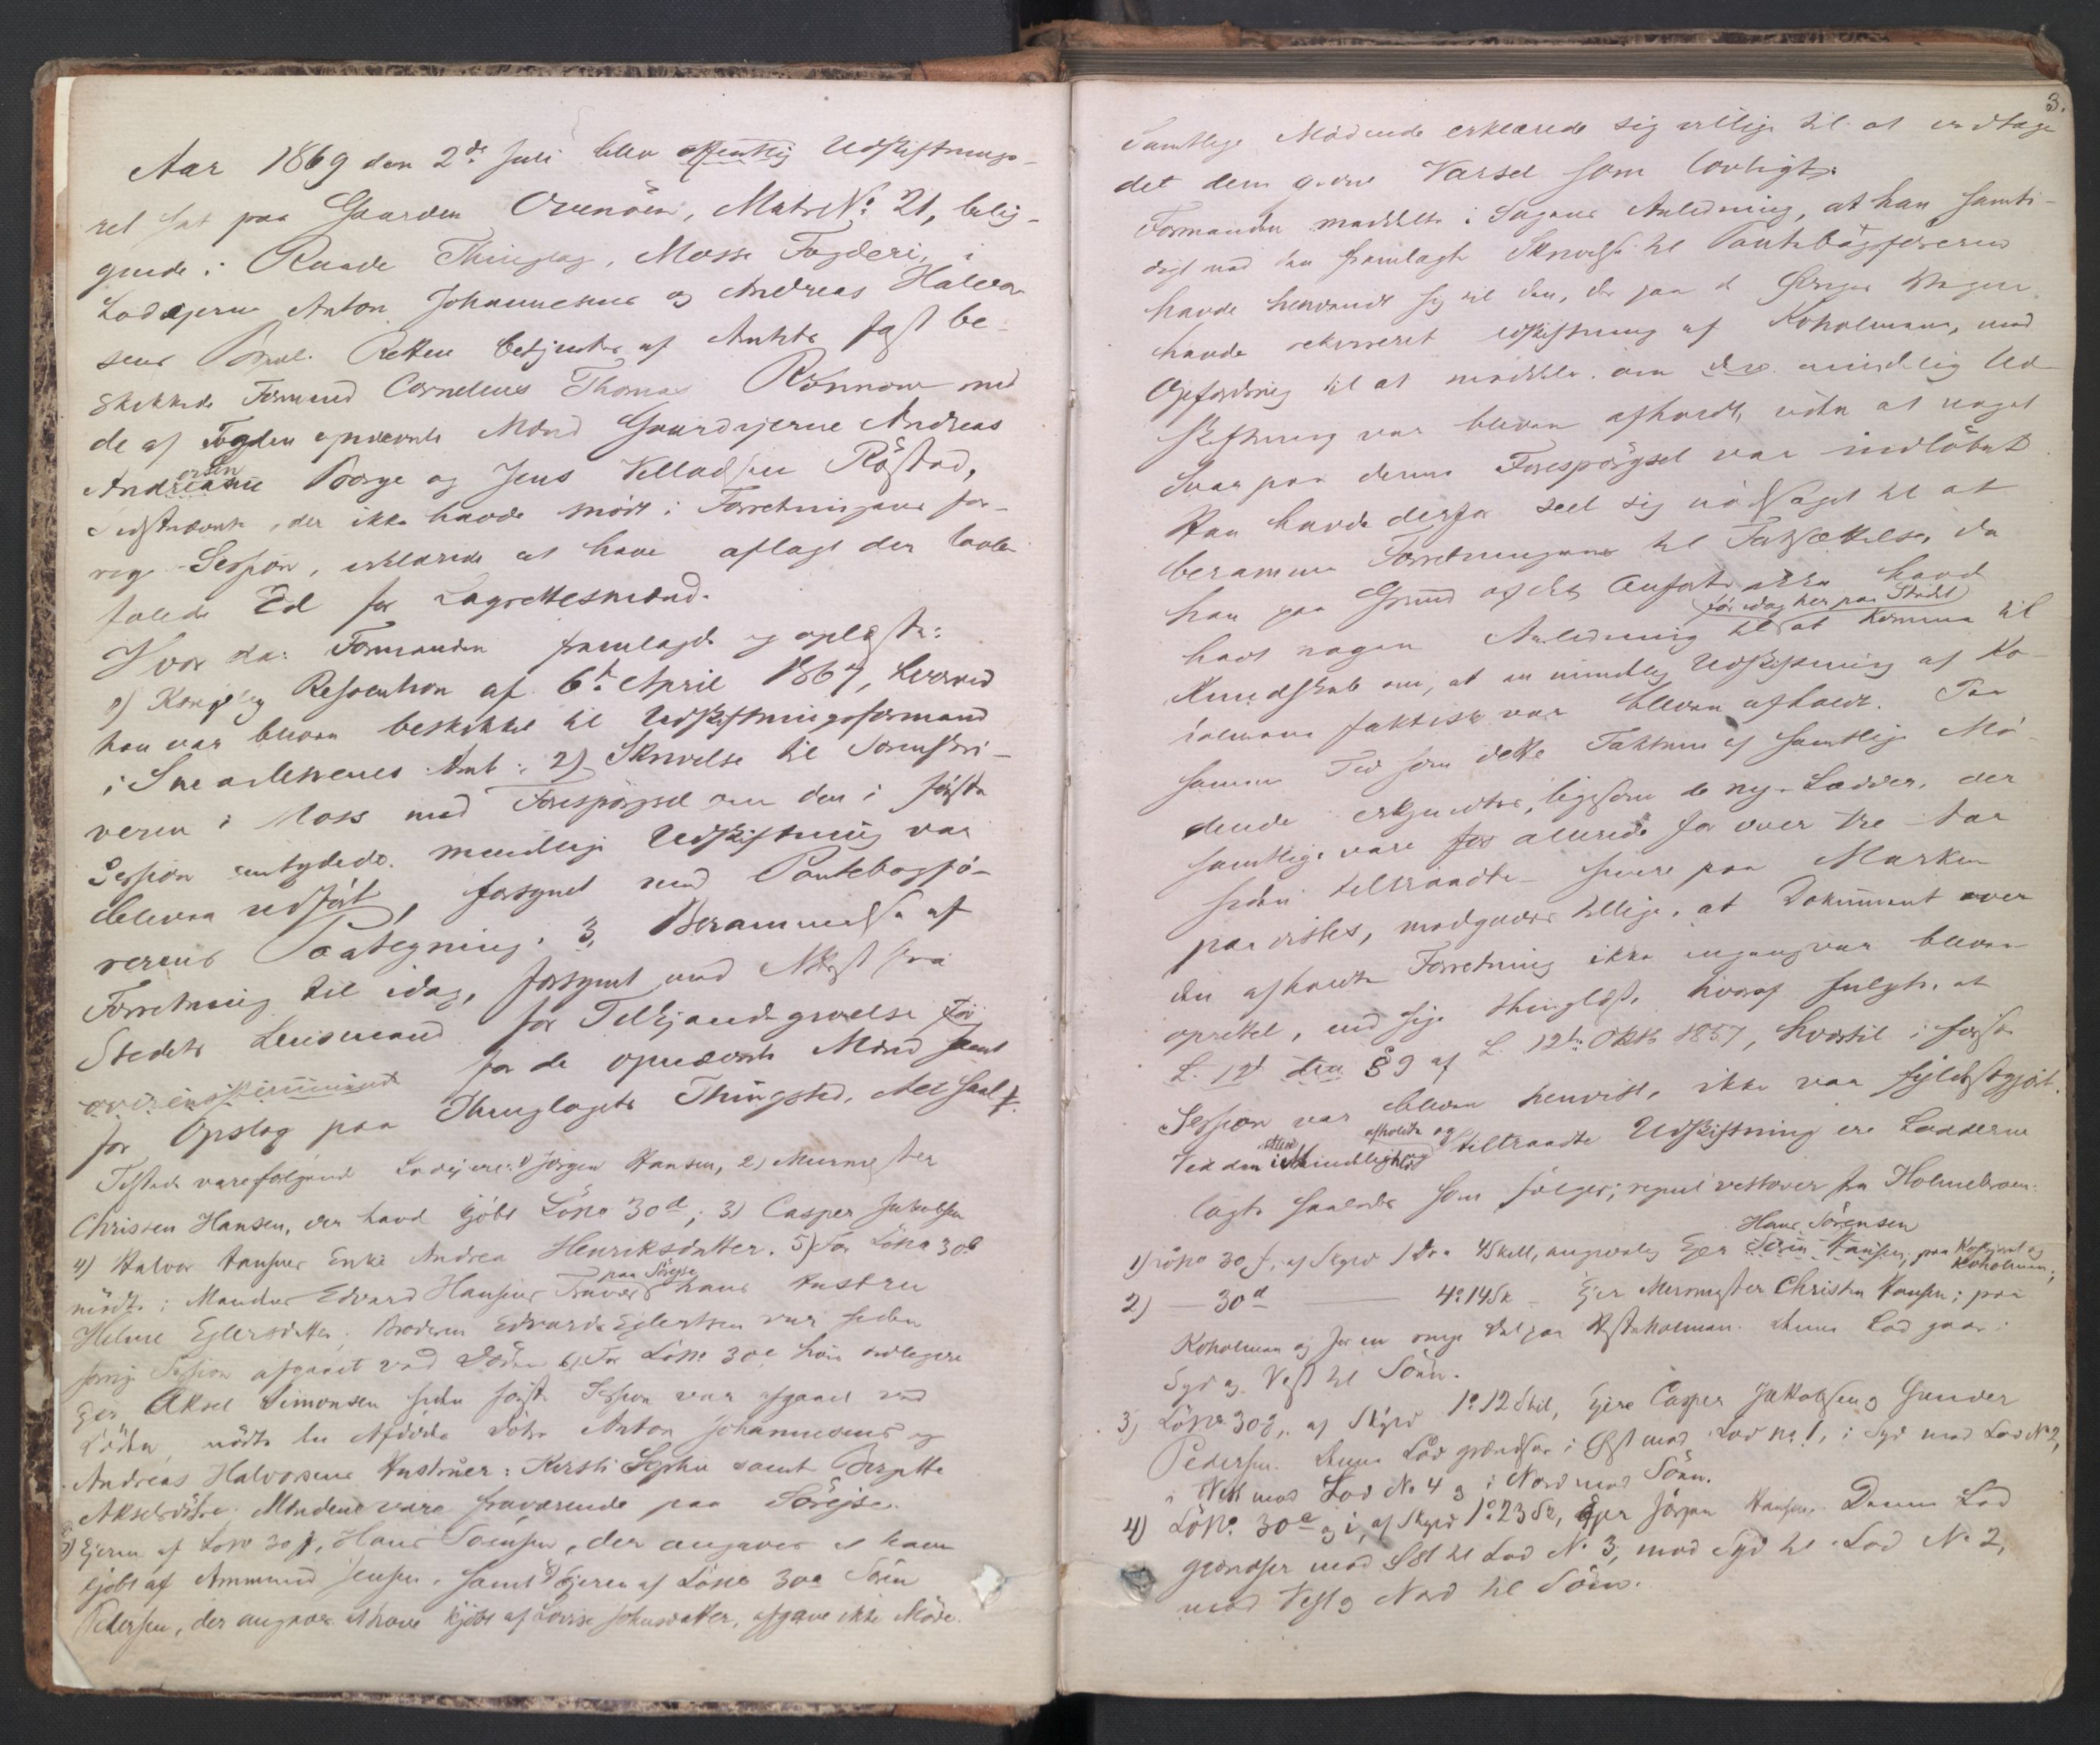 Aar 1869 den 2de Juli blev offentlig Udskiftnings-
ret sat paa Gaarden Ovenöen, Matr№ 21, belig-
gende i Raade Thinglag, Mosse Fogderi, i
Lodejerne Anton Johannesens og Andreas Halvor
sens Retten betjentes af Amtets fast be-
skikkede Formand Cornelius Thomas Rönnow med
de af Fogden opnævnte Mænd Gaardejerne Andreas
Andreassen Borge og Jens Velladsen Röstad,
Sidstnævnte, der ikke havde mödt i Forretningens for-
rige Session, erklærede at have aflagt den lovbe
falede Ed for Lagrettesmænd.
Hvor da: Formanden fremlagde og oplæste:
1) Kongelig Resolution af 6te April 1867, hvorved
han var bleven beskikket til Udskiftningsformand
i Smaalenenes Amt: 2) Skrivelse til Sorenskri-
veren i Moss med Forespörgsel om den i förste
Session antydede mindelige Udskiftning var
bleven udfört, forsynet med Pantebogfö-
rerens Paategning. 3, Berammelse af
Forretning til idag, forsynet med Attest fra
Stedets Lensmand for Tilkjendegivelse for
overensstemmende for de opnævnte Mænd samt
for Opslag paa Thinglagets Thingsted. Alt saal.
Tilstede vare fölgende Lodejere: 1) Jörgen Hansen, 2) Murmester
Christen Hansen, der havd kjöbt Löno 30d; 3) Casper Jakobsen
4) Halvor Hansens Enke Andrea Henriksdatter. 5) For Löno 30b
mödte i Manden Edvard Hansens Fravær paa Söreise hans Hustru
Helene Eglersdatter. Broderen Edvard Eglertsen var siden
forrige Session afgaaet ved Döden 6) For Löno 30c hvis tidligere
Ejer Aksel Simonsen siden sidste Session var afgaaet ved
Döden, mödte den Afdödes Dötre Anton Johannesens og
Andreas Halvorsens Hustruer: Kirsti Sophie samt Birgitte
Akselsdötre. Mændene vare fraværende paa Söreise.
7) Ejeren af Löno 30f, Hans Sörensen, der angaves at have
kjöbt af Ammund Jensen, samt 8) Ejeren af Löno 30a Sören
Pedersen, der angaves at have kjöbt af Lovise Johnsdatter, afgave ikke Möde.
3.
Samtlige Mödende erklærede sig villige til at vedtage
det dem givne Varsel som lovligt.
Formanden meddelte i Sagens Anledning, at han samti-
digt med den fremlagte Skrivelse til Pantebogföreren
havde henvendt sig til den, der paa Vegne
havde rekvireret Udskiftning af Koholmen, med
Opfordring til at meddele, om den mindelig Ud-
skiftning var bleven afholdt, uden at noget
Svar paa denne Forespörgsel var indlöbet.
Han havde derfor seet sig nödsaget til at
beramme Forretningen til Fortsættelse, da
han paa Grund af det Anförte ikke havd
havt nogen Anledning til för idag her paa Stedet at komme til
Kundskab om, at en mindelig Udskiftning af Ko-
holmene faktisk var bleven afholdt. Paa
samme Tid som dette Faktum af samtlige Mö-
dende erkjendtes, ligesom de nye Lodder, der
samtlige vare for allerede for over tre Aar
siden tiltraadte senere paa Marken
paavistes, medgaves tillige, at Dokument over
den afholdte Forretning ikke engang var bleven
oprettet, end sige thinglæst, hvoraf fulgte, at
L. 12te den §9 af L. 12te Oktb 1857, hvortil i forrige
Session var bleven henvist, ikke var fyldestgjort.
Ved den i Mindelighed afholdte og tiltraadte Udskiftning ere Lodderne
lagte saaledes som fölger, regnet vestover fra Holmebroen:
1) Löno 30f, af Skyld 1 Dr. 4 Skill, angivelig Ejer Sörin Hansen, Hans Sörensen paa og Koholmen;
2) — 30d — 4o 14 Sk — Ejer Murmester Christen Hansen; paa
Koholmen og for en ringe Del paa Vestreholmen. Denne Lod gaar i
Syd og Vest til Söen.
3) Löno 30g, af Skyld 1o 12 Skil, Ejere Casper Jakobsen og Gunder
Pedersen. Denne Lod grændser i Öst mod Lod No 1, i Syd mod Lod No 2,
i Vest mod Lod No 4 og i Nord mod Söen.
4) Löno 30e og i, af Skyld 1o 23 Sk, Ejer Jörgen Hansen. Denne Lod
grændser mod Öst til Lod No 3, mod Syd til Lod No 2,
mod Vest og Nord til Söen.